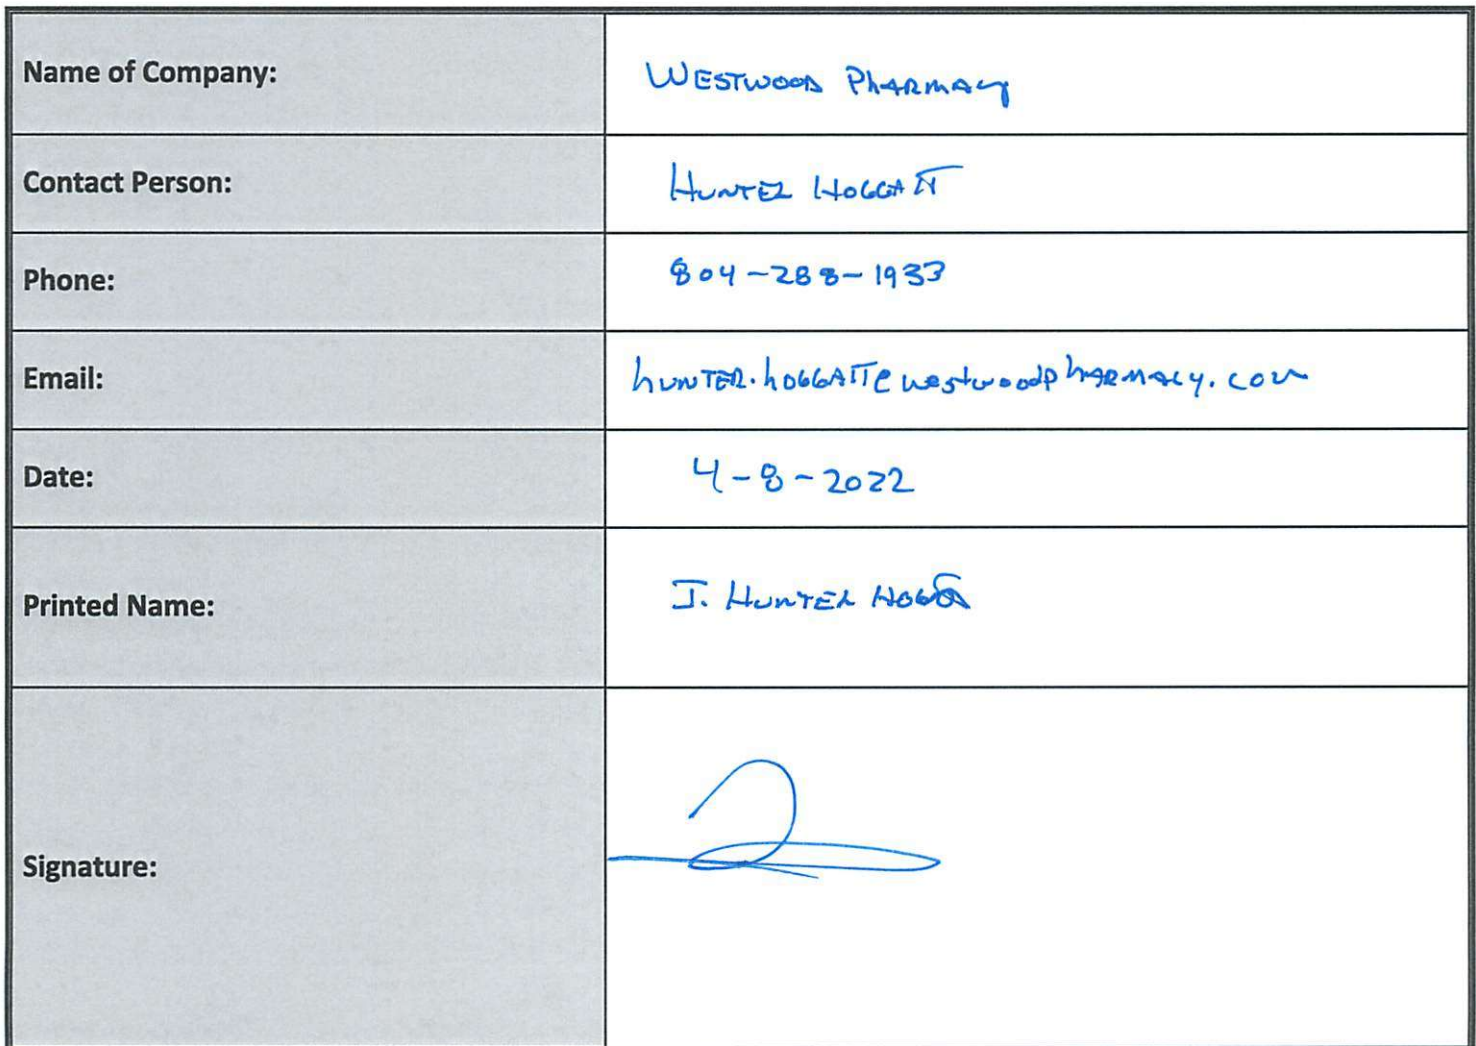 Name of Company: WESTWOOD PhARMACy
Contact Person: HUNTER HOGGATT
Phone: 804-288-1933
Email: hUNTER.hOGGATT@westwoodphARMACy.com
Date: 4-8-2022
Printed Name: J. HUNTER
Signature: